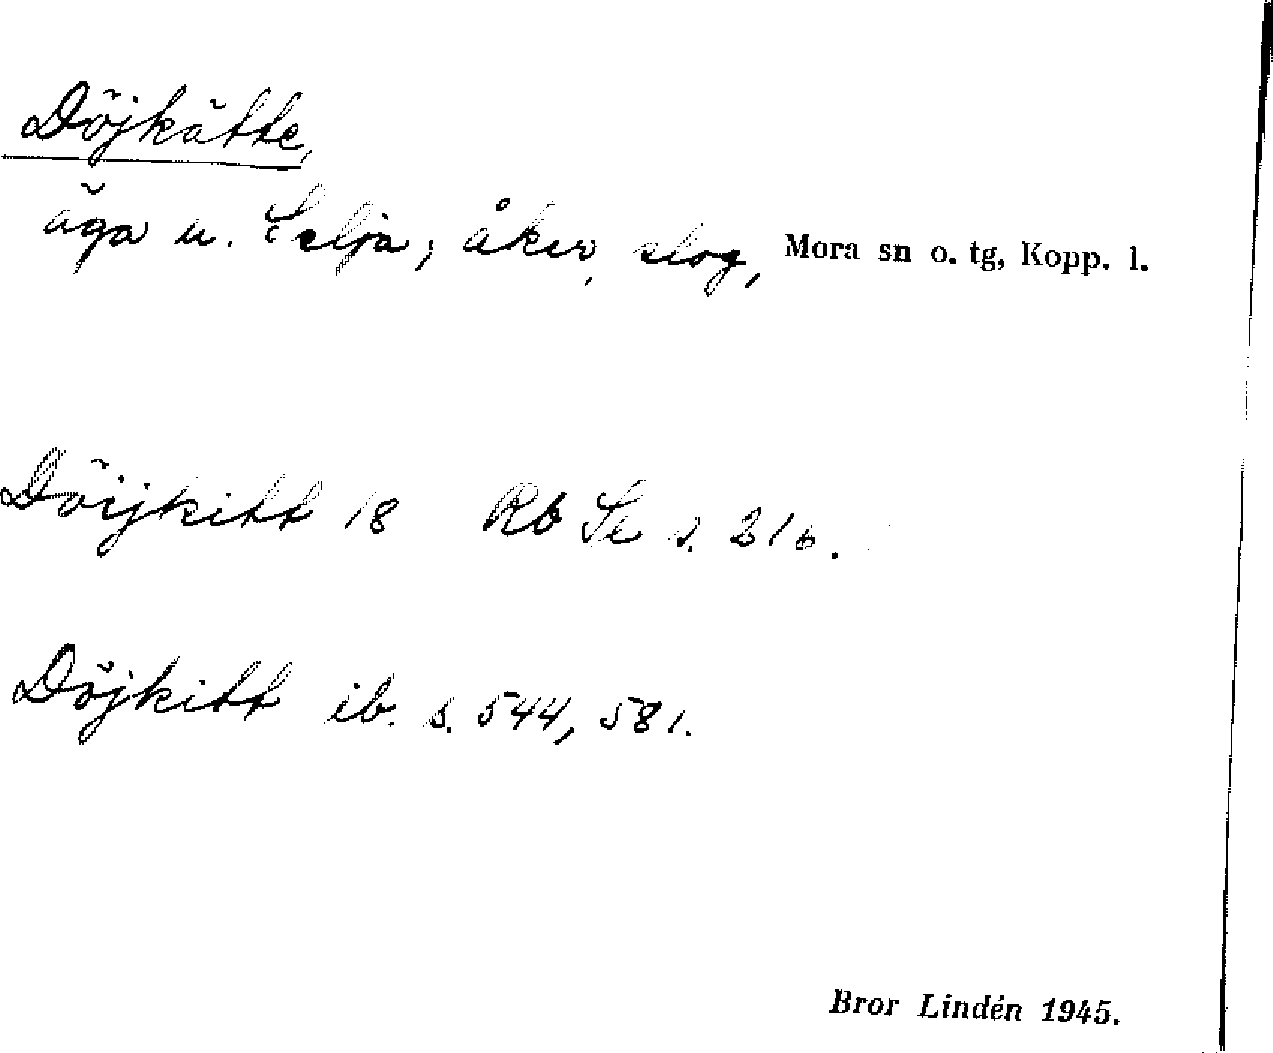 Döjkätte,
äga u. Selja; åker, slog, Mora sn o. tg, Kopp. l.
Döijkitt 18 Rb Se s. 216.
Döjkitt ib. s. 544, 581.
Bror Lindén 1945.